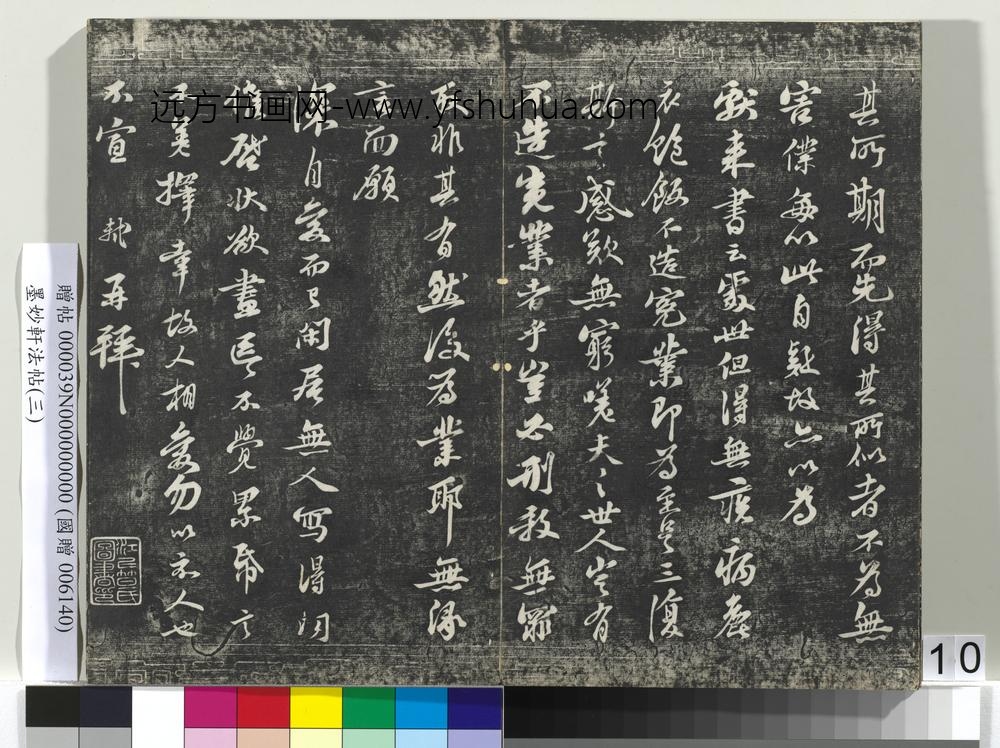 其所期而先得其所似者不為無
害僕每以此自疑故亦以為
獻來書云處世但得無疾病麤
衣飽飯不造冤業即為至足三復
斯言感歎無窮嗟夫世人豈有
不造先業者乎豈必刑殺無罪
取非其有然後為業耶無緣
言而願
深自愛而已閑居無人寫得
啓狀欲盡不覺累幅
擇幸故人相愛勿以示人也
不宣 軾再拜
远方书画网-www.yfshuhua.com
贈帖 000039N000000000 (國贈 006140)
墨妙軒法帖(三)
10